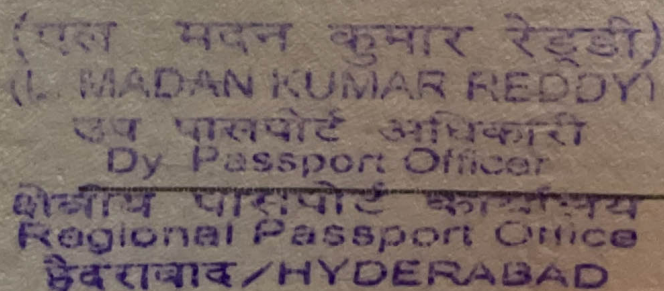 (एल मदन कुमार रेड्डी)
(L. MADAN KUMAR REDDY)
उप पासपोर्ट अधिकारी
Dy Passport Officer
क्षेत्रीय पासपोर्ट कार्यालय
Regional Passport Office
हैदराबाद/HYDERABAD